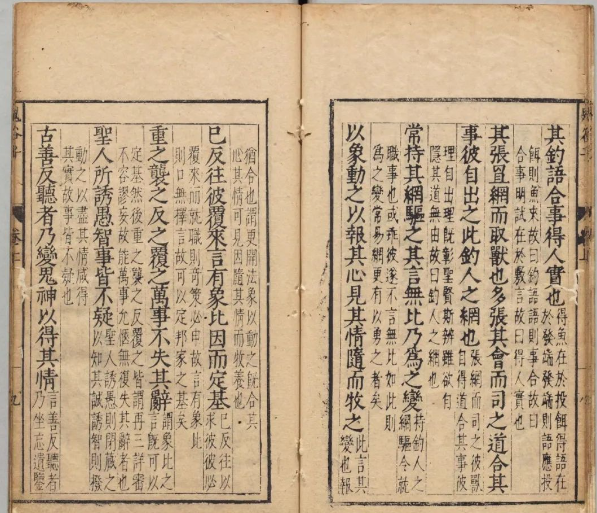 其釣語合事得人實也
得魚在於投餌得語在
於發端發端則語應投
餌則魚來故曰釣語語則事合故曰
合事明試在於敷言故曰得人實也
其張罝網而取獸也多張其會而司之道合其
事彼自出之此釣人之網也
張網而司之彼獸
自得道合其事彼
理自出理既彰聖賢斯辨雖欲自
隱其道無由故曰釣人之網也
常持其網驅之其言無比乃為之變
持釣人之
網驅令就
職事也或乖彼遂不言無比如此則
為之變常易網更有以勇之者矣
以象動之以報其心見其情隨而牧之
此言其
變也報
猶合也謂更開法象以動之既合其
心其情可見因隨其情而牧養也
已反往彼覆來言有象比因而定基
已反往以
求彼彼必
覆來而就職則奇策必申故言有象比
則口無擇言故可以定邦家之基矣
重之襲之反之覆之萬事不失其辭
謂象比之
言既可以
定基然後重之襲之反覆之皆謂再三詳審
不容謬妄故能萬事允愜無復失其辭者也
聖人所誘愚智事皆不疑
聖人誘愚則閉藏之
以知其誠誘智則撥
動之以盡其情咸得
其實故事皆不疑也
古善反聽者乃變鬼神以得其情
言善反聽者
乃坐忘遺鑒
卷上
九